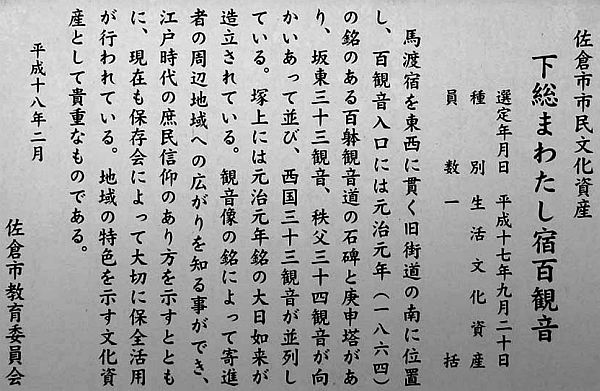 佐倉市市民文化資産
下総まわたし宿百観音
選定年月日 平成十七年九月二十日
種別 生活文化資産
員数 一括
馬渡宿を東西に貫く旧街道の南に位置
し、百観音入口には元治元年(一八六四)
の銘のある百躰観音道の石碑と庚申塔があ
り、坂東三十三観音、秩父三十四観音が向
かいあって並び、西国三十三観音が並列し
ている。塚上には元治元年銘の大日如来が
造立されている。観音像の銘によって寄進
者の周辺地域への広がりを知る事ができ、
江戸時代の庶民信仰のあり方を示すととも
に、現在も保存会によって大切に保全活用
が行われている。地域の特色を示す文化資
産として貴重なものである。
平成十八年二月
佐倉市教育委員会